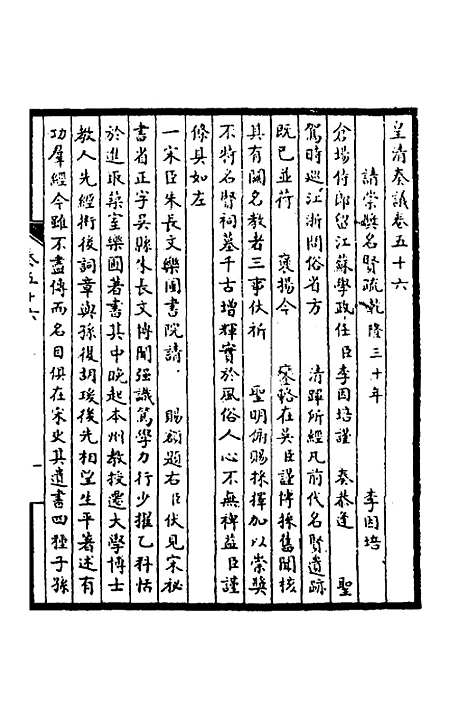 皇清奏議卷五十六
請崇獎名賢疏乾隆三十年 李因培
倉場侍郎留江蘇學政任臣李因培謹 奏恭逢 聖
駕時巡江浙問俗省方 清蹕所經凡前代名賢遺跡
既已並荷 褒揚今 鑾輅在吳臣謹博採舊聞核
具有關名教者三事伏祈 聖明俯賜採擇加以崇獎
不特名賢祠墓千古增輝實於風俗人心不無裨益臣謹
條具如左
一宋臣朱長文樂圃書院請 賜額題右臣伏見宋祕
書省正字吳縣朱長文博聞强識篤學力行少擢乙科恬
於進取築室樂圃著書其中晚起本州教授遷大學博士
教人先經術後詞章與孫復胡瑗後先相望生平著述有
功羣經今雖不盡傳而名目俱在宋史其遺書四種子孫
卷五十六
一